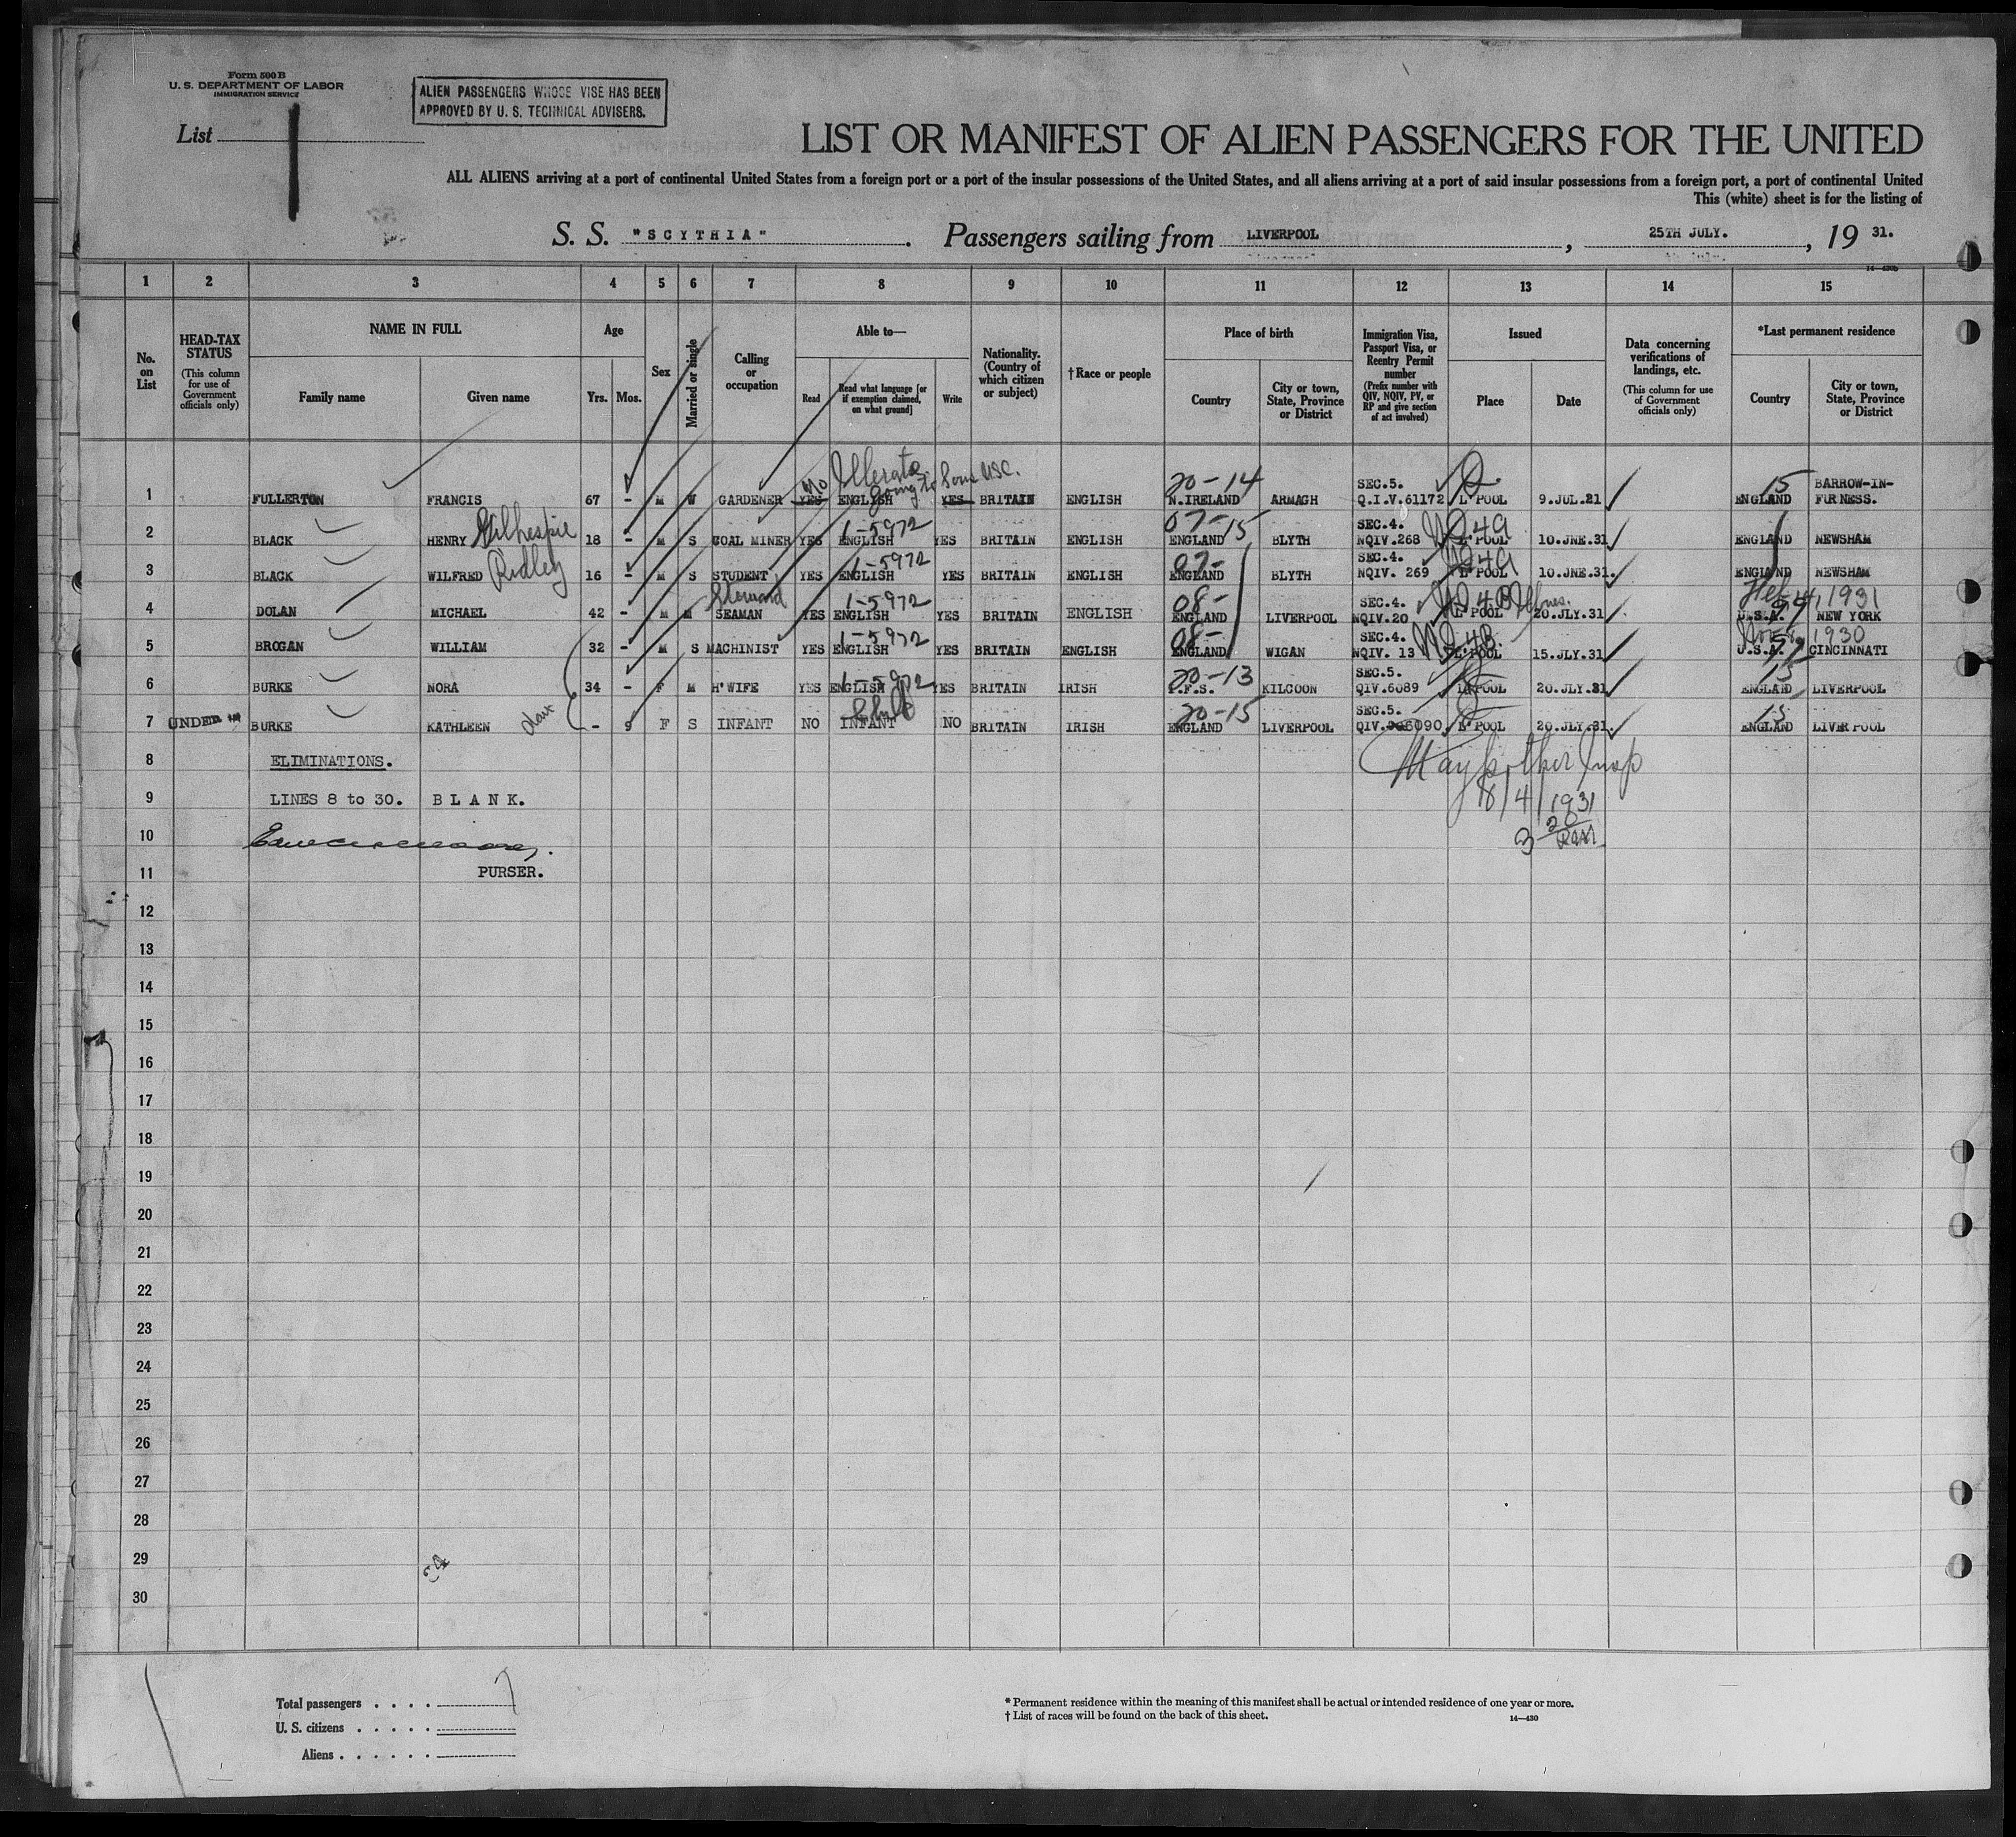 Form 500 B
U. S. DEPARTMENT OF LABOR
IMMIGRATION SERVICE
ALIEN PASSENGERS WHOSE VISE HAS BEEN
APPROVED BY U. S. TECHNICAL ADVISERS.
List 1
LIST OR MANIFEST OF ALIEN PASSENGERS FOR THE UNITED
ALL ALIENS arriving at a port of continental United States from a foreign port or a port of the insular possessions of the United States, and all aliens arriving at a port of said insular possessions from a foreign port, a port of continental United
This (white) sheet is for the listing of
S. S. "SCYTHIA" . Passengers sailing from LIVERPOOL , 25TH JULY. , 19 31.
14—430b
1 2 3 4 5 6 7 8 9 10 11 12 13 14 15
No. on List
HEAD-TAX STATUS (This column for use of Government officials only)
NAME IN FULL
Family name Given name
Age
Yrs. Mos.
Sex
Married or single
Calling or occupation
Able to—
Read Read what language [or if exemption claimed, on what ground] Write
Nationality. (Country of which citizen or subject)
†Race or people
Place of birth
Country City or town, State, Province or District
Immigration Visa, Passport Visa, or Reentry Permit number (Prefix number with QIV, NQIV, PV, or RP and give section of act involved)
Issued
Place Date
Data concerning verifications of landings, etc. (This column for use of Government officials only)
*Last permanent residence
Country City or town, State, Province or District
No Illerate going to Sons USC. 20-14 SEC.5. 15 BARROW-IN-
1 FULLERTON FRANCIS 67 - M W GARDENER YES ENGLISH YES BRITAIN ENGLISH N.IRELAND ARMAGH Q.I.V.61172 L'POOL 9.JUL.21 ENGLAND FURNESS.
Gilhespie 1-5972 07-15 SEC.4.
2 BLACK HENRY 18 - M S COAL MINER YES ENGLISH YES BRITAIN ENGLISH ENGLAND BLYTH NQIV.268 L'POOL 10.JNE.31 ENGLAND NEWSHAM
Ridley 1-5972 07- SEC.4.
3 BLACK WILFRED 16 - M S STUDENT YES ENGLISH YES BRITAIN ENGLISH ENGLAND BLYTH NQIV. 269 L'POOL 10.JNE.31. ENGLAND NEWSHAM
Steward 1-5972 08- SEC.4. 1931
4 DOLAN MICHAEL 42 - M M SEAMAN YES ENGLISH YES BRITAIN ENGLISH ENGLAND LIVERPOOL NQIV.20 L'POOL 20.JLY.31 U.S.A. NEW YORK
1-5972 08- SEC.4. 1930
5 BROGAN WILLIAM 32 - M S MACHINIST YES ENGLISH YES BRITAIN ENGLISH ENGLAND WIGAN NQIV. 13 L'POOL 15.JLY.31 U.S.A. CINCINNATI
1-5972 20-13 SEC.5. 15
6 BURKE NORA 34 - F M H'WIFE YES ENGLISH YES BRITAIN IRISH I.F.S. KILCOON QIV.6089 L'POOL 20.JLY.31 ENGLAND LIVERPOOL
Child 20-15 SEC.5. 15
7 UNDER BURKE KATHLEEN - 9 F S INFANT NO INFANT NO BRITAIN IRISH ENGLAND LIVERPOOL QIV. 6090 L'POOL 20.JLY.31. ENGLAND LIVERPOOL
8 ELIMINATIONS.
9 LINES 8 to 30. BLANK.
8/4/1931
10
11 PURSER.
12
13
14
15
16
17
18
19
20
21
22
23
24
25
26
27
28
29
30
Total passengers . . . . 7
U. S. citizens . . . . .
Aliens . . . . . .
* Permanent residence within the meaning of this manifest shall be actual or intended residence of one year or more.
† List of races will be found on the back of this sheet. 14—430